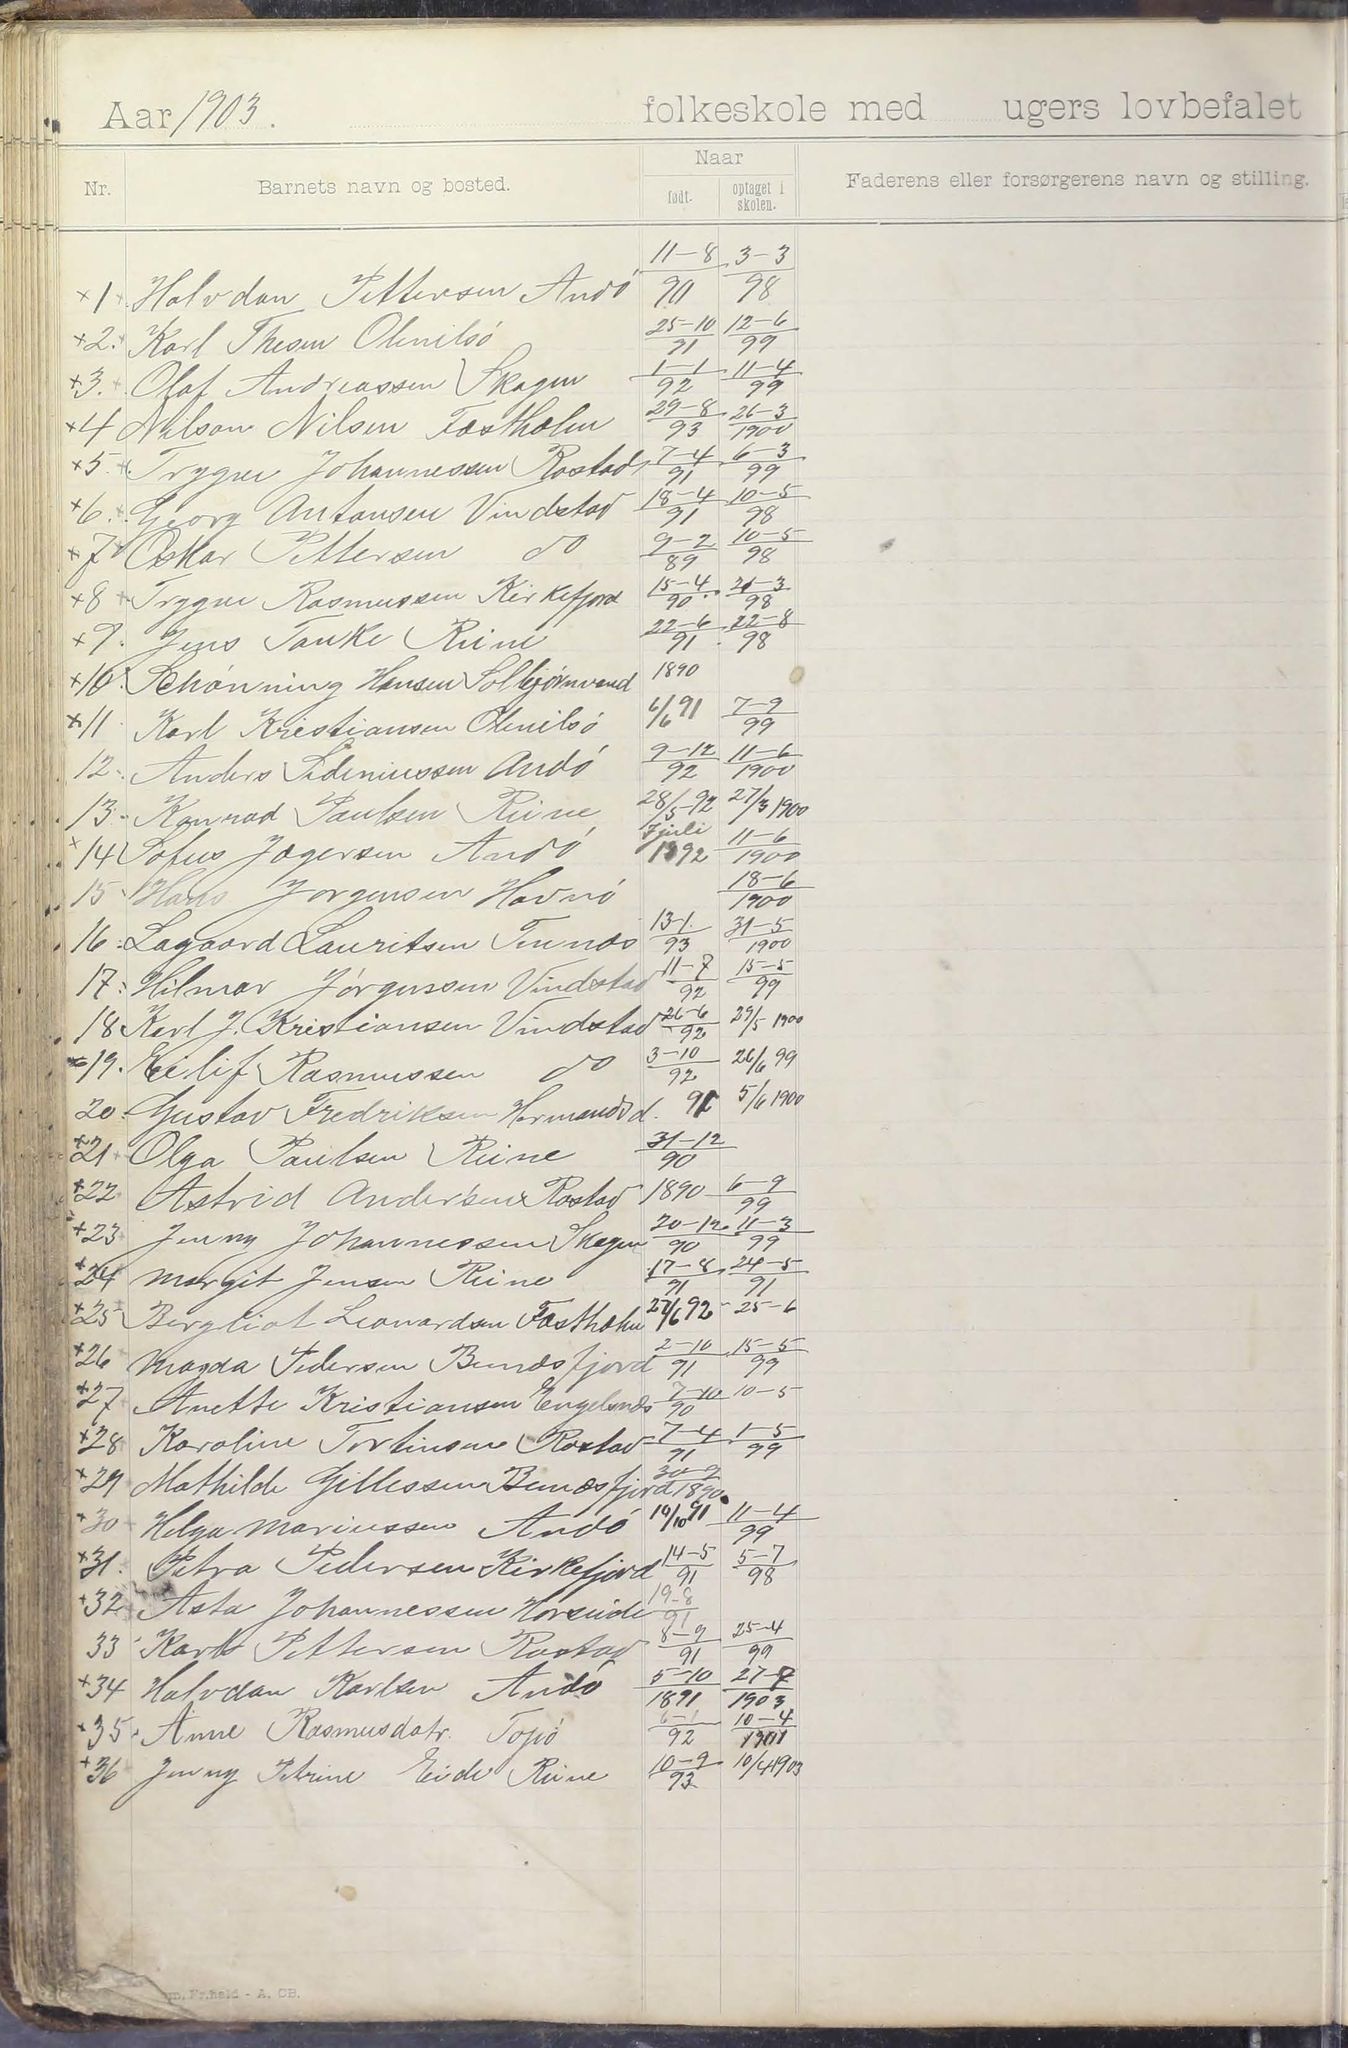 Aar 1903. folkeskole med ugers lovbefalet
Nr. Barnets navn og bosted. Naar født. optaget i skolen. Faderens eller forsørgerens navn og stilling.
×1 Halvdan Pettersen Andö 11-8/90 3-3/98
×2. Karl Thesen Olenilsö 25-10/91 12-6/99
×3. Olaf Andreassen Skagen 1-1/92 11-4/99
×4 Nilson Nilsen Fæstholm 29-8/93 26-3/1900
×5 Trygve Johannessen Rostad 7-4/91 6-3/99
×6. Georg Antonsen Vindstad 18-4/91 10-5/98
×7 Oskar Pettersen do 9-2/89 10-5/98
×8 Trygve Rasmussen Kirkefjord 15-4/90 21-3/98
×9. Jens Tanke Reine 22-6/91 22-8/98
×10. Schönning Hansen Solbjörnvand 1890
×11 Karl Kristiansen Olenilsö 6/6 91 7-9/99
12. Anders Sideniussen Andö 9-12/92 11-6/1900
13. Konrad Paulsen Reine 28/5-92 27/3 1900
×14 Sofus Jægersen Andö 7 juli 1892 11-6/1900
15 Hans Jorgensen Havnö 18-6/1900
16. Lagaard Lauritsen Tennes 13-1./93 31-5/1900
17. Hilmar Jörgensen Vindstad 11-7/92 15-5/99
18 Karl J. Kristiansen Vindstad 26-6/92 29/5 1900
×19. Eilif Rasmussen do 3-10/92 26/6 99
20. Gustav Fredriksen Hermansd. 91 5/6 1900
×21 Olga Paulsen Reine 31-12/90
×22 Astrid Andersen Rostad 1890 6-9/99
×23 Jenny Johannessen Skagen 20-12/90 11-3/99
×24 Margit Jensen Reine 17-8/91 24-5/91
×25 Bergliot Leonardsen Fæstholm 27/6 92 25-6
×26 Magda Pedersen Bunæsfjord 2-10/91 15-5/99
×27 Anette Kristiansen Engelsnæs 7-10/90 10-5
×28 Karoline Tortinsen Rostad 7-4/91 1-5/99
×29 Mathilde Gillessen Bunæsfjord 30-9/1890
×30 Helga Mariussen Andö 19/10 91 11-4/99
×31. Petra Pedersen Kirkefjord 14-5/91 5-7/98
×32 Asta Johannessen Horseide 19-8/91
33 Karl Pettersen Rostad 8-9/91 25-4/99
×34 Halvdan Karlsen Andö 5-10/1891 27-7/1903
×35. Anne Rasmusdatr. Topö 6-1/92 10-4/1901
×36 Jenny Petrine Eide Reine 10-9/93 10/4 1903
Fr.hald - A. CB.